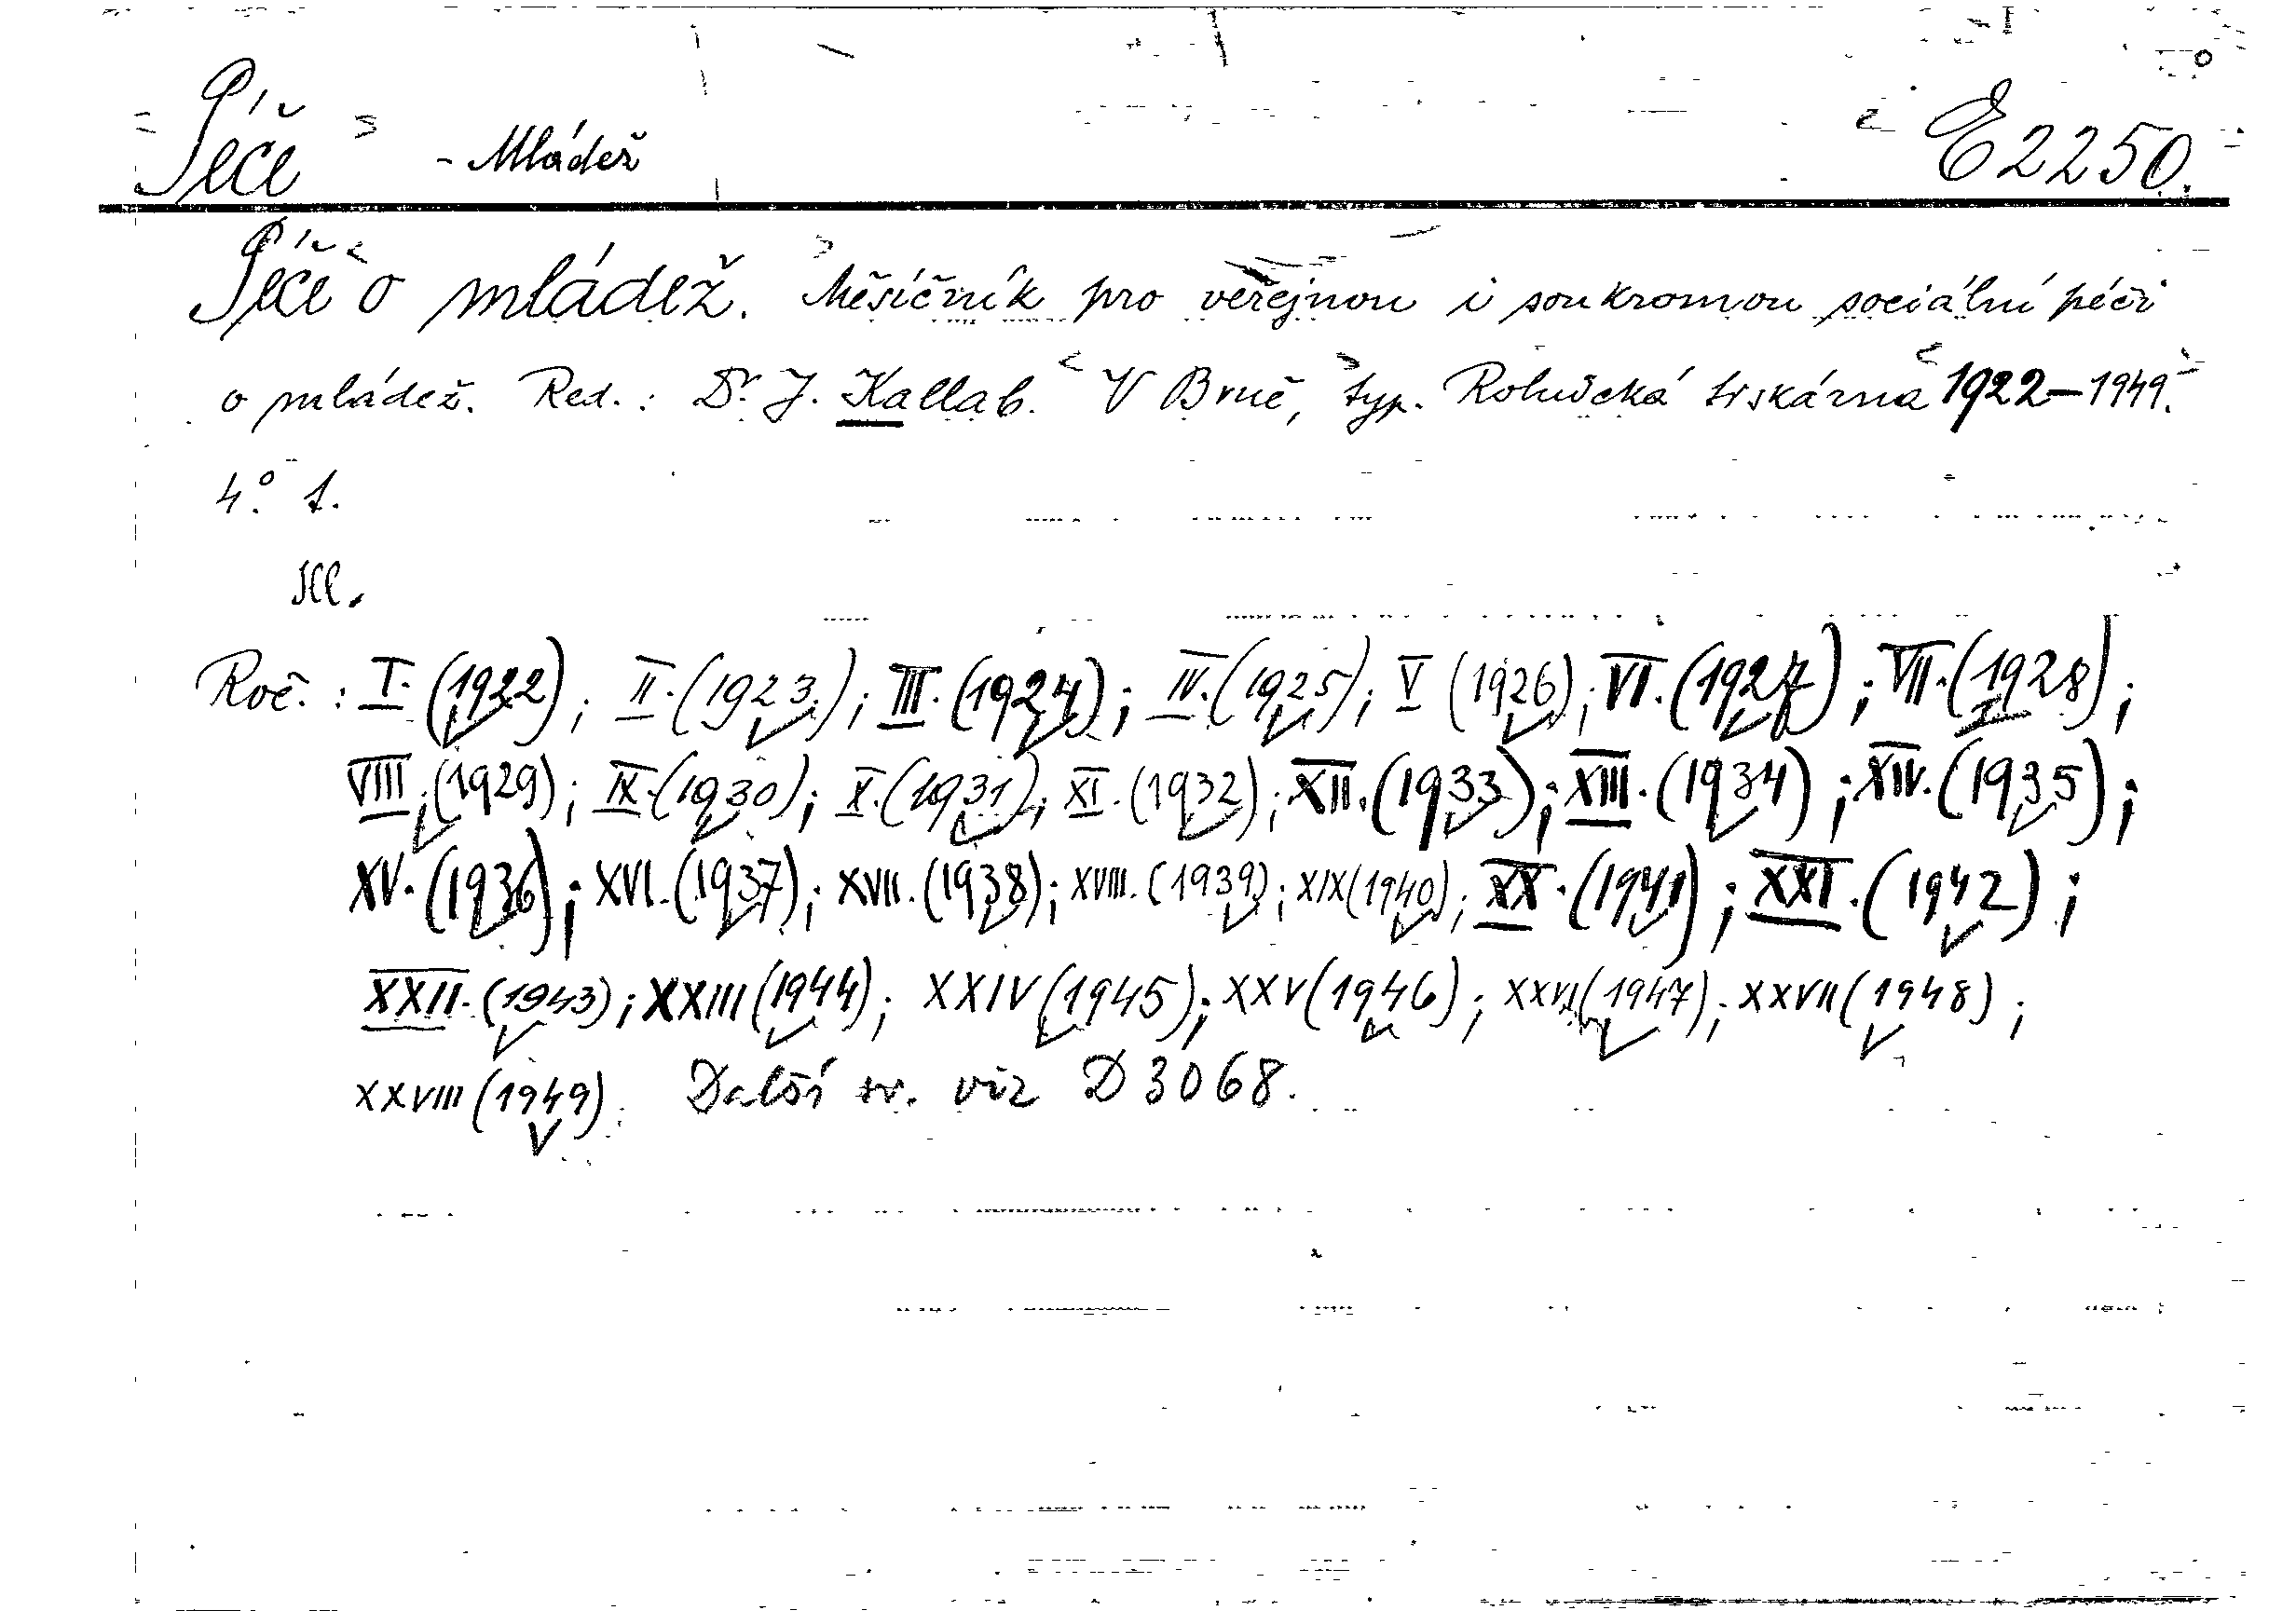 Péče - Mládež E 2250.
Péče o mládež. Měsíčník pro veřejnou i soukromou sociální péči
o mládež. Red.: Dr. J. Kallab. V Brně, typ. Rolnická tiskárna 1922-1949.
4°. 1.
Ill.
Roč.: I. (1922); II. (1923); III. (1924); IV. (1925); V (1926); VI. (1927); VII. (1928);
VIII. (1929); IX. (1930); X. (1931); XI. (1932); XII. (1933); XIII. (1934); XIV. (1935);
XV. (1936); XVI. (1937); XVII. (1938); XVIII. (1939); XIX (1940); XX. (1941); XXI. (1942);
XXII. (1943); XXIII (1944); XXIV (1945); XXV (1946); XXVI (1947); XXVII (1948);
XXVIII (1949). Další sv. viz D 3068.